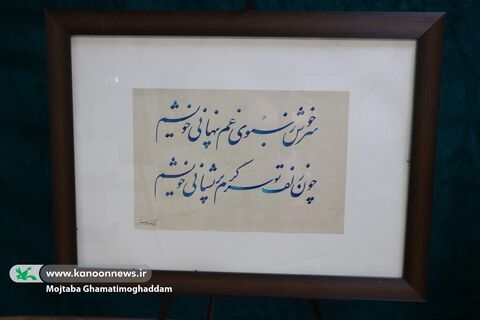 سرخوش ز سبوی غم پنهانی خویشم
چون زلف تو سرگرم پریشانی خویشم
www.kanoonnews.ir
Mojtaba Ghamatimoghaddam